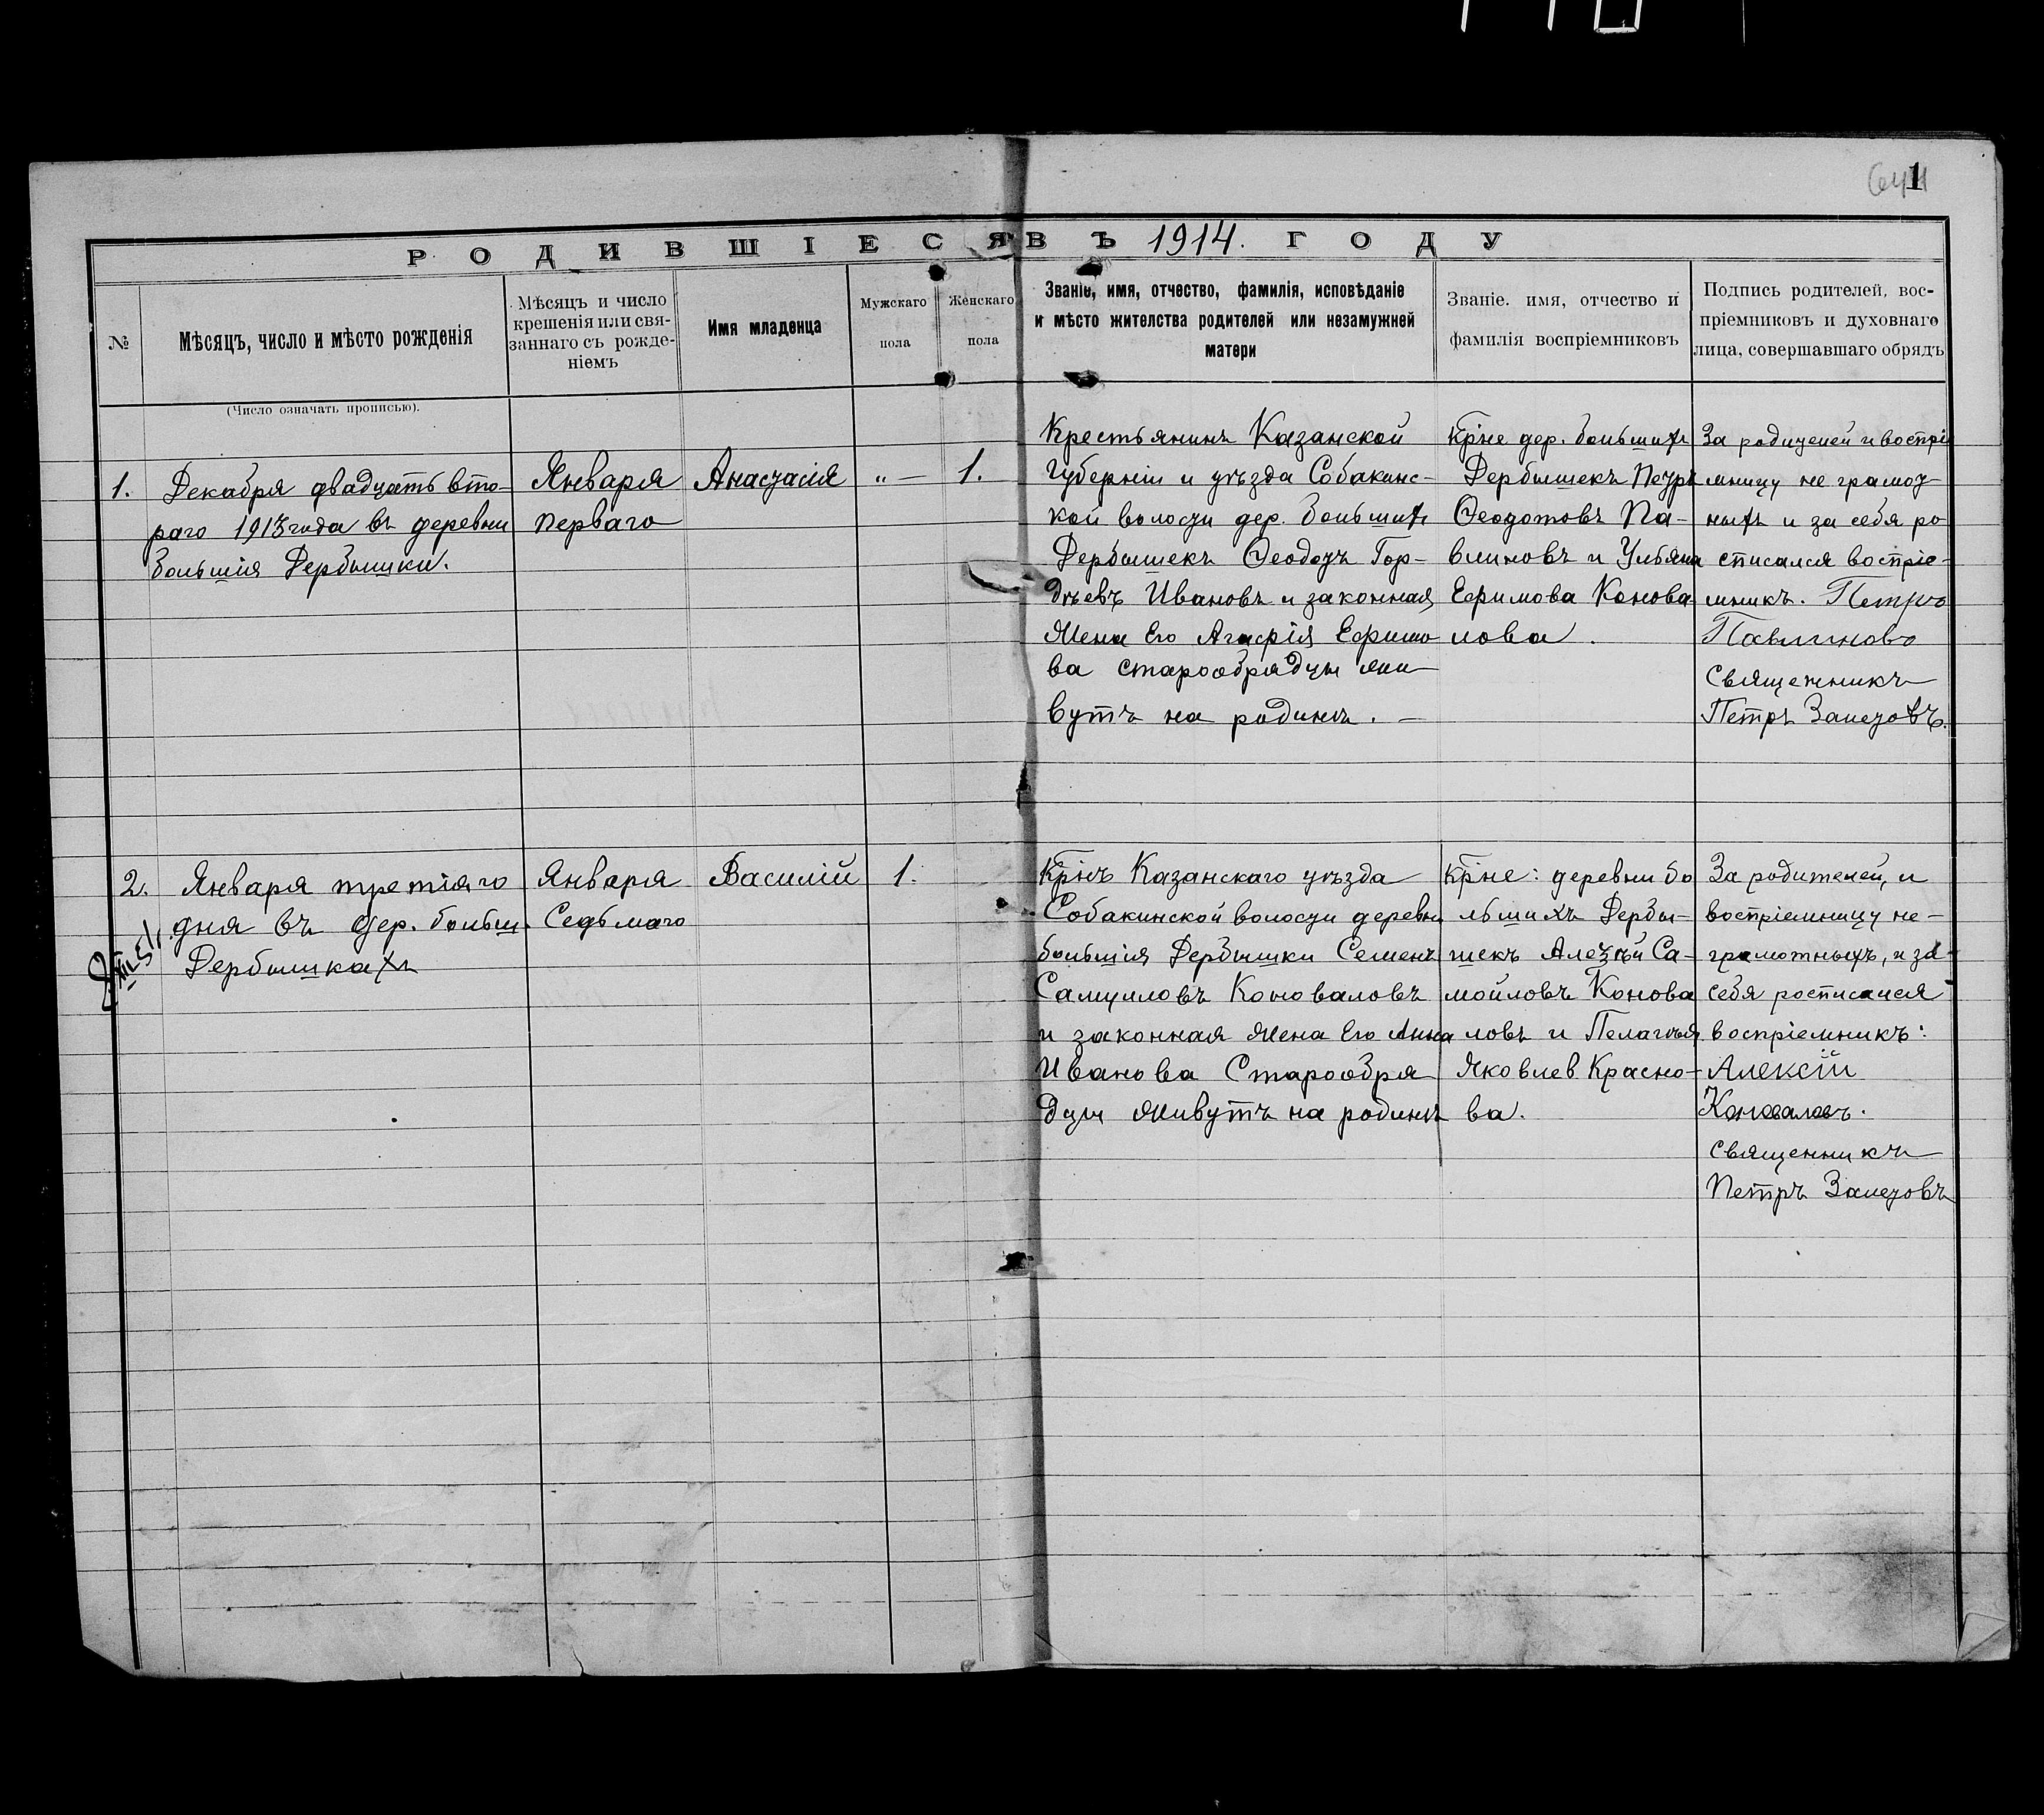 1
РОДИВШІЕСЯ ВЪ 1914. ГОДУ
№
Мѣсяцъ, число и мѣсто рожденія
Мѣсяцъ и число
крещенія или свя-
заннаго съ рожде-
ніемъ
Имя младенца
Мужскаго
пола
Женскаго
пола
Званіе, имя, отчество, фамилія, исповѣданіе
и мѣсто жителства родителей или незамужней
матери
Званіе. имя, отчество и
фамилія воспріемниковъ
Подпись родителей, вос-
пріемниковъ и духовнаго
лица, совершавшаго обрядъ
(Число означать прописью).
1.
Декабря двадцать вто-
раго 1913 года въ деревни
большія Дербышки.
Января
перваго
Анастасія
„ —
1.
Крестьянинъ Казанской
Губерніи и уѣзда Собакинс-
кой волости дер. большихъ
Дербышекъ Ѳеодотъ Гор-
дѣевъ Ивановъ и законная
Жена Его Агафія Ефимо
ва старообрядцы жи
вутъ на родинѣ. —
Крне дер. большихъ
Дербышекъ Петръ
Ѳеодотовъ Па-
влиновъ и Ульяна
Ефимова Конова
лова.
За родителей и воспрі
мницу не грамот
ныхъ и за себя ро
списался воспріе-
мникъ. Петръ
Павлиновъ
Священникъ
Петръ Залетовъ.
2.
Января третіяго
дня въ дер. больш.
Дербышкахъ
Января
Седьмаго
Василій
1.
Крнъ Казанскаго уѣзда
Собакинской волости деревни
большія Дербышки Семенъ
Самуиловъ Коноваловъ
и законная жена Его Анна
Иванова Старообря
дцы живутъ на родинѣ
Крне: деревни бо
льшихъ Дербы-
шекъ Алексѣй Са-
мойловъ Конова
ловъ и Пелагѣя
Яковлев Красно-
ва.
За родителей, и
воспріемницу не-
грамотныхъ, и за
себя росписался
воспріемникъ:
Алексій
Коноваловъ.
Священникъ
Петръ Залетовъ